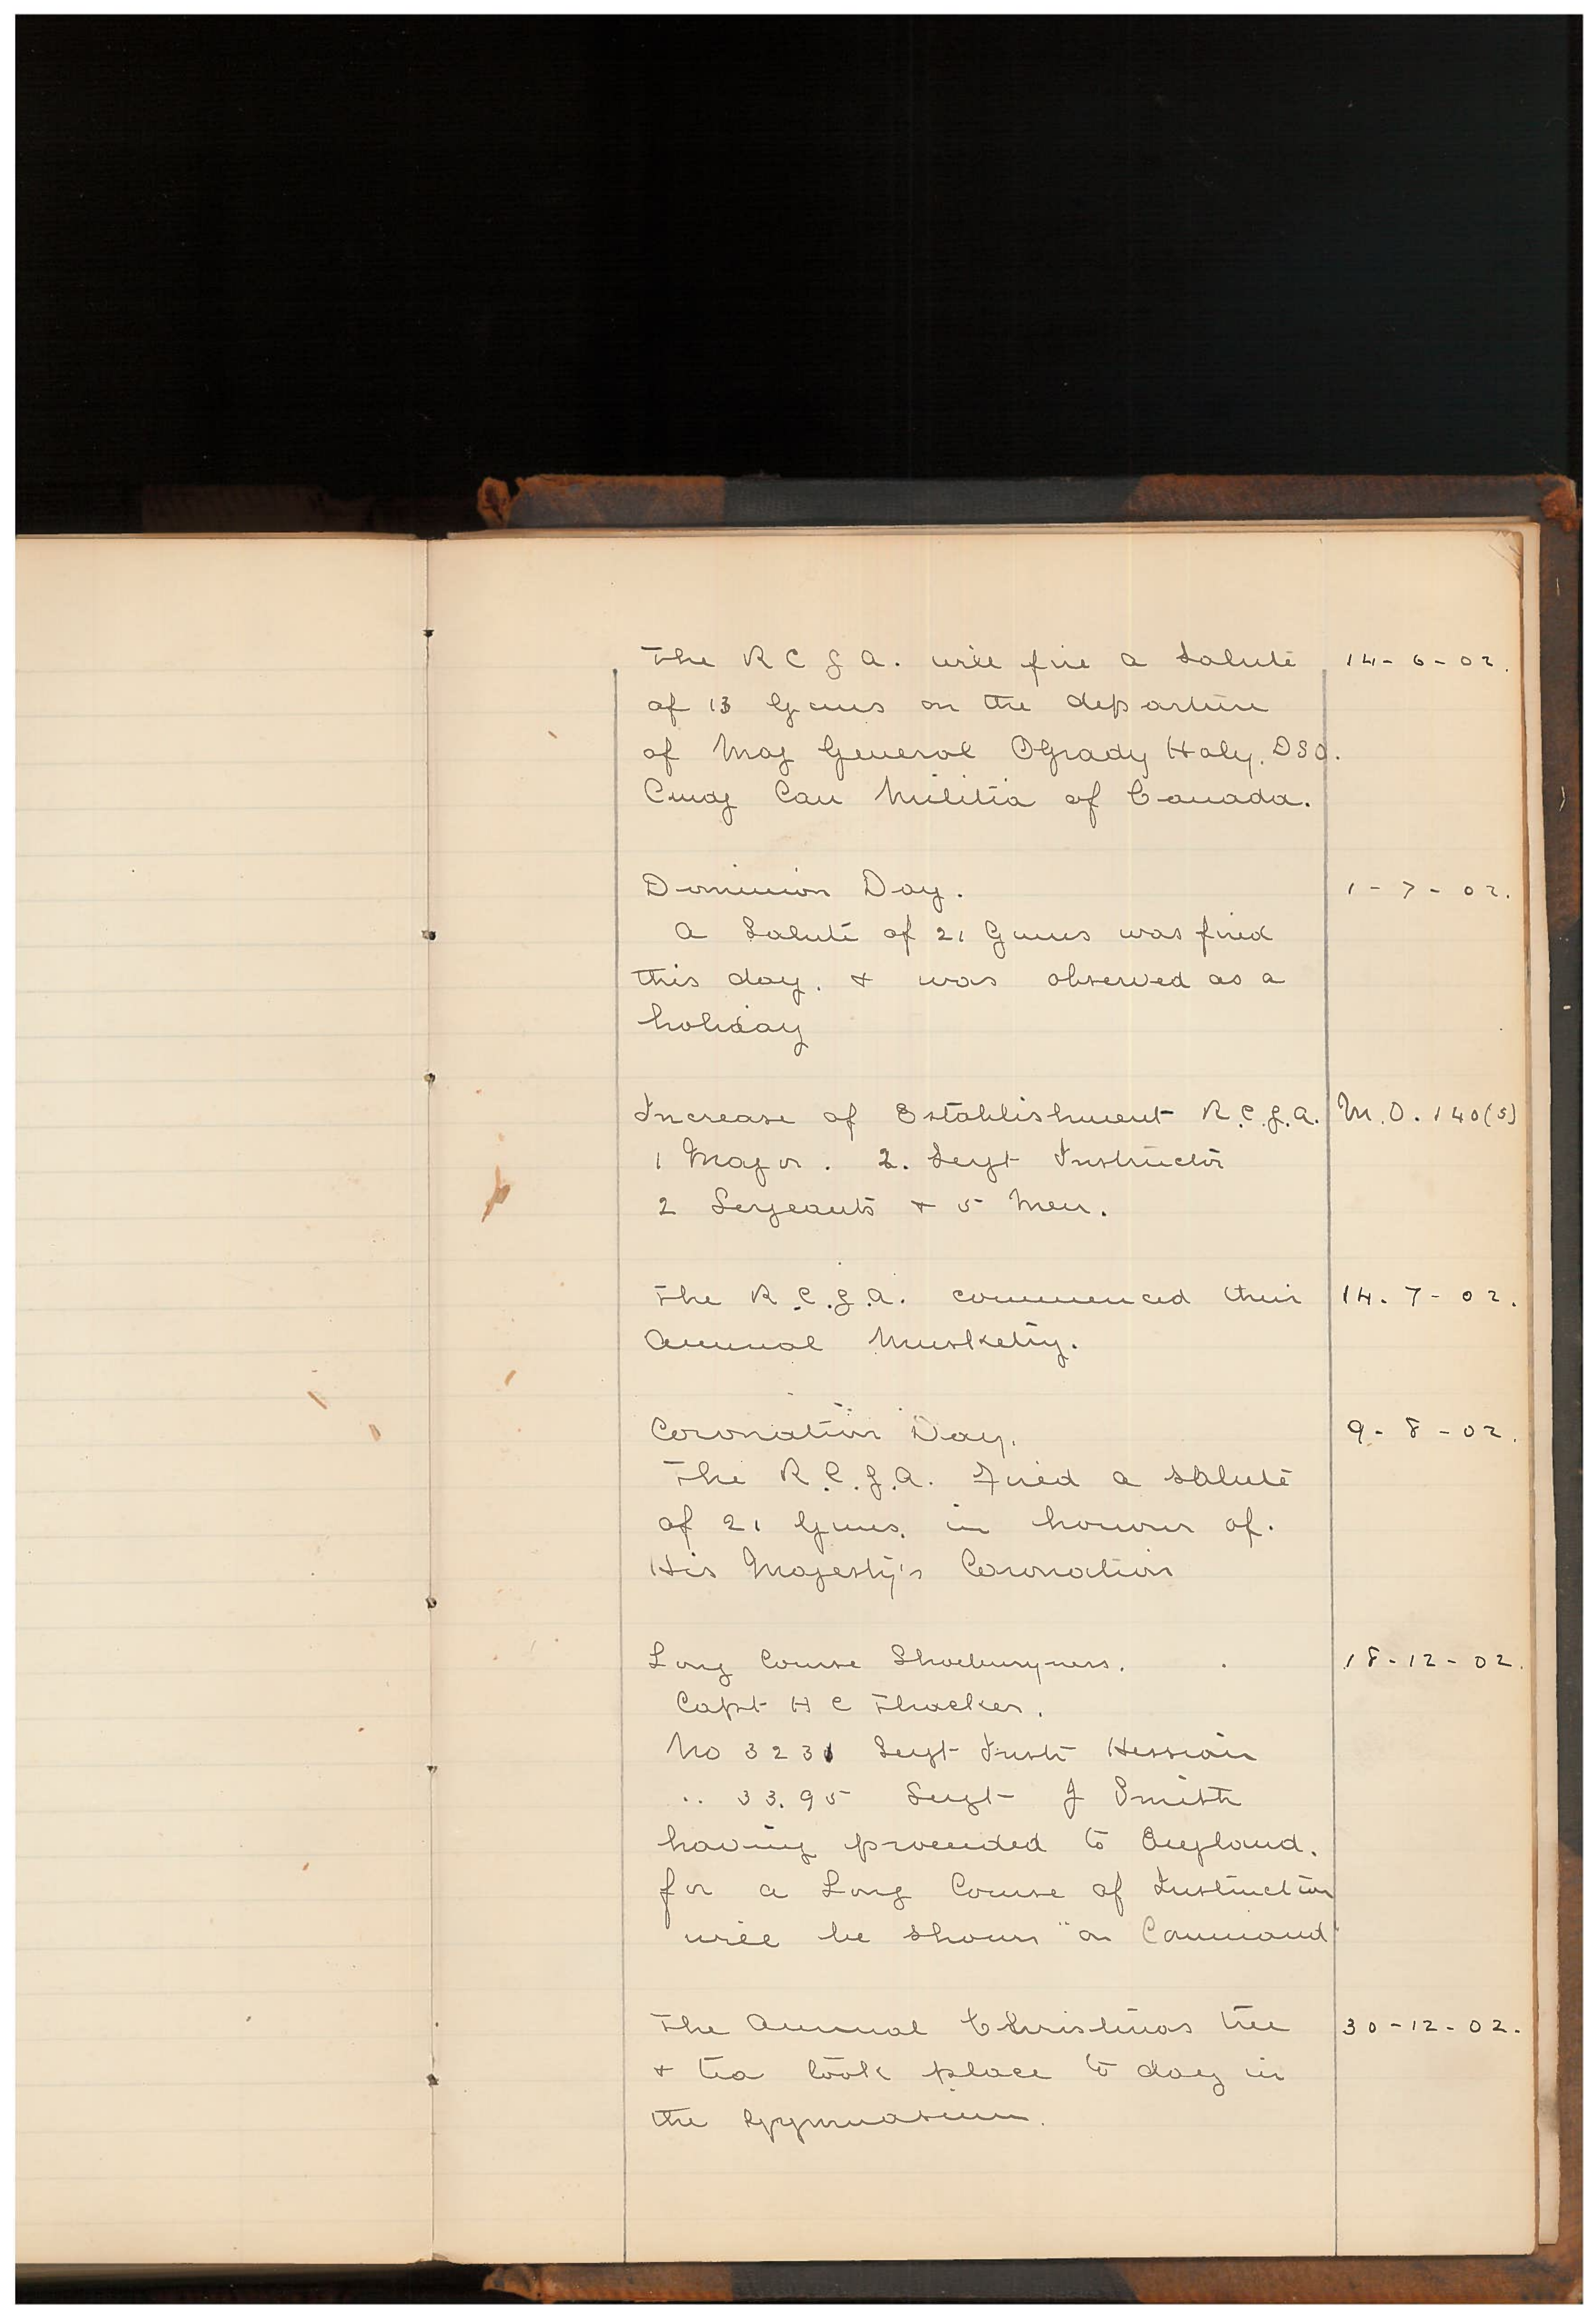 The R C G A. will fire a Salute 14-6-02.
of 13 Guns on the departure
of Maj General OGrady Haly. DSO.
Cmdg Can Militia of Canada.
Dominion Day. 1-7-02.
A Salute of 21 Guns was fired
this day. & was observed as a
holiday
Increase of Establishment R.C.G.A. M.O. 140(S)
1 Major. 2. Sergt Instructor
2 Sergeants & 5 Men.
The R.C.G.A. commenced their 14.7-02.
Annual Musketry.
Coronation Day. 9-8-02.
The R.C.G.A. Fired a salute
of 21 Guns. in honour of.
His Majesty's Coronation
Long Course Shoeburyness. 18-12-02.
Capt H C Thacker.
No 3231 Sergt Instr Hessian
.. 33.95 Sergt J Smith
having proceeded to England.
for a Long Course of Instruction
will be shown "on Command"
The Annual Christmas tree 30-12-02.
& tea took place to day in
the Gymnasium.